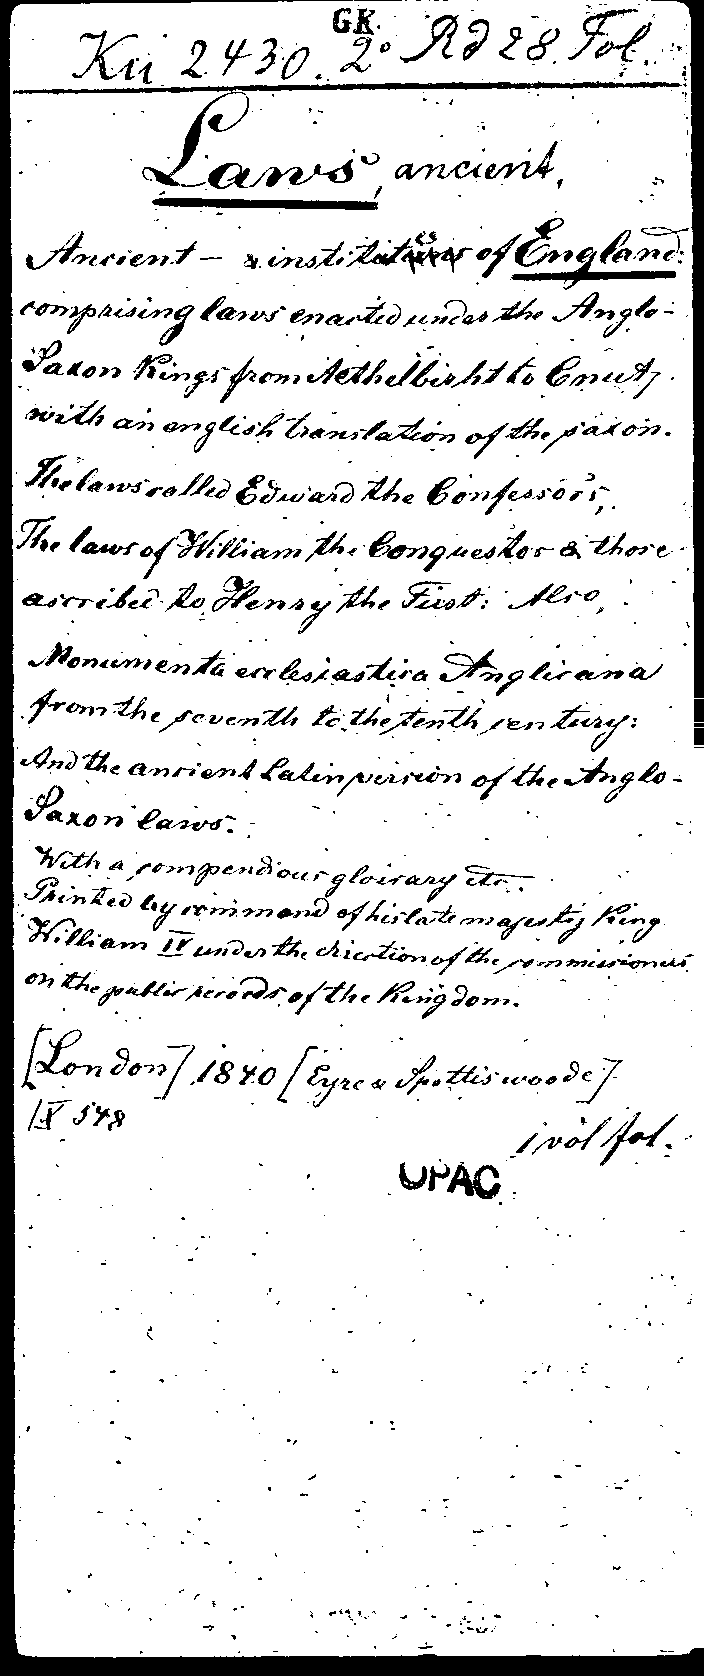 GK.
Kü 2430. 2° Rd 28. Fol.
Laws, ancient,
Ancient – & institutes of England:
comprising laws enacted under the Anglo-
Saxon Kings from Aethelbirht to Cnut,
with an english translation of the saxon.
The laws called Edward the Confessor's,
The laws of William the Conquestor & those
ascribed to Henry the First: Also,
Monumenta ecclesiastica Anglicana
from the seventh to the tenth century:
And the ancient Latin version of the Anglo-
Saxon laws.
With a compendious glossary etc.
Printed by command of his late majesty King
William IV under the direction of the commissioners
on the public records of the Kingdom.
[London] 1840 [Eyre & Spottiswoode]
548
1 vol fol.
OPAC